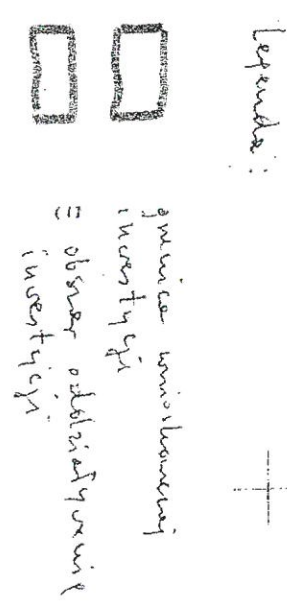 Legenda:
granica wnioskowanej
inwestycji
= obszar oddziaływania
inwestycji